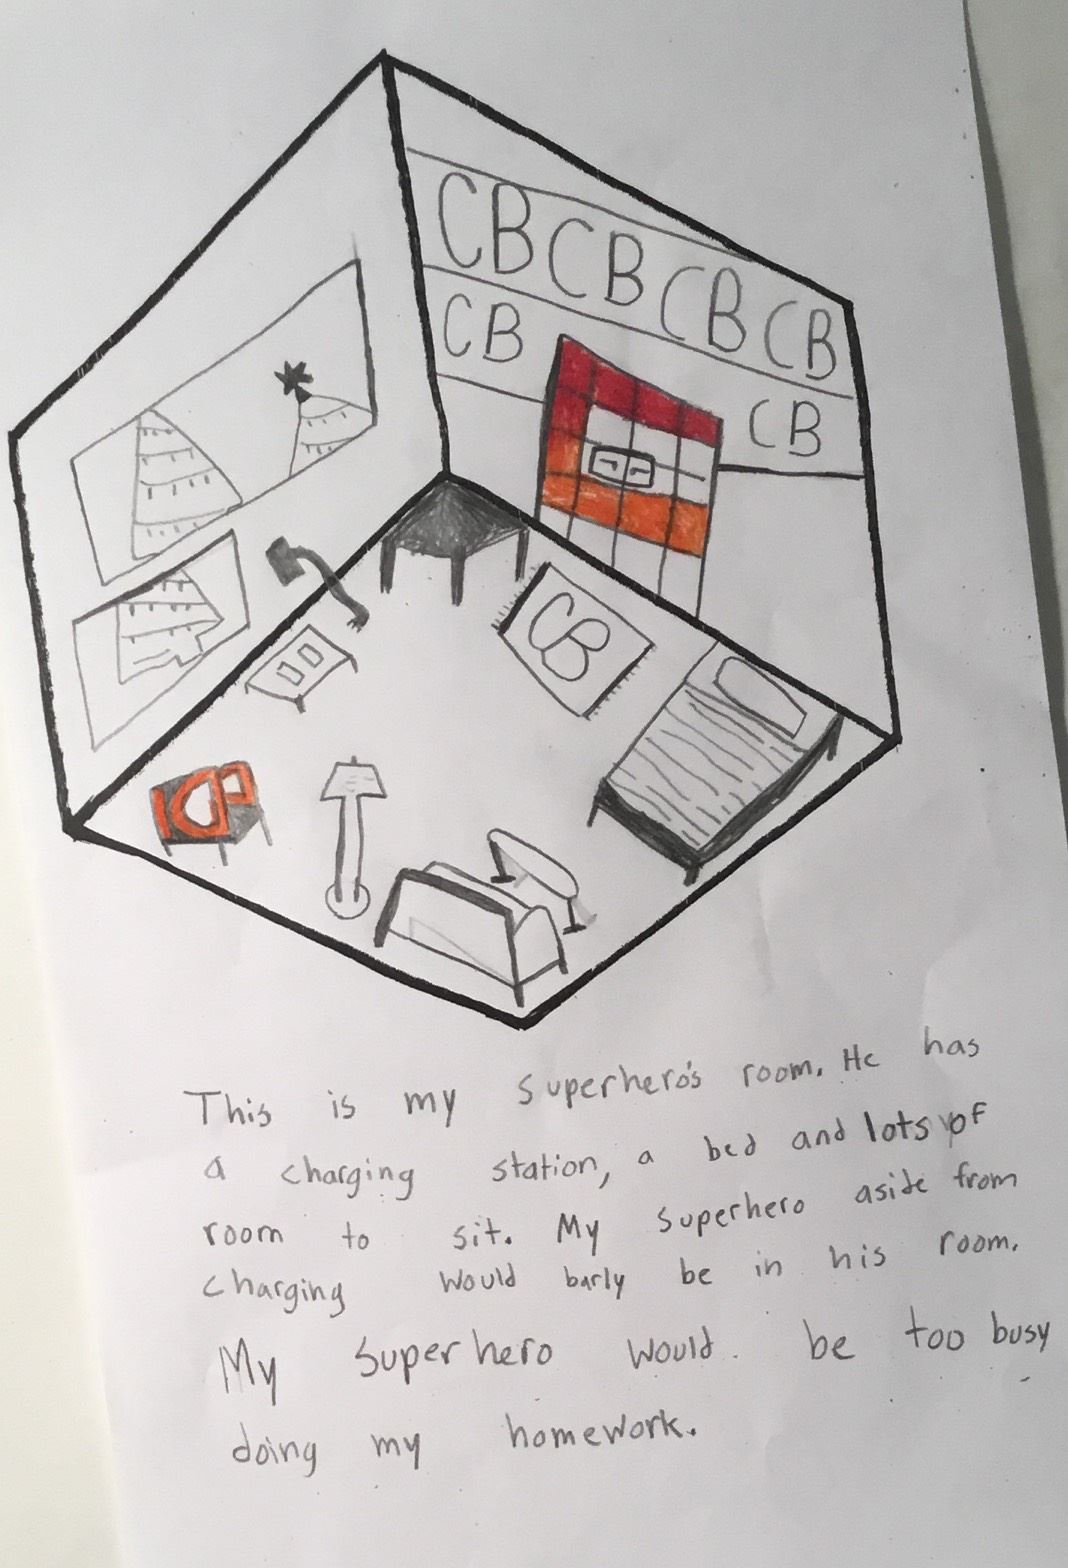 CB CB CB CB
CB
CB
CB
CB
This is my superhero's room. He has
a charging station, a bed and lots of
room to sit. My superhero aside from
charging would barly be in his room.
My superhero would. be too busy
doing my homework.